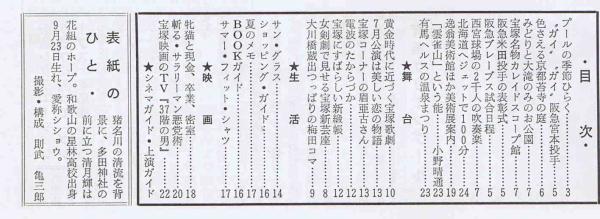 ・目次・
プールの季節ひらく……3
〝ガイ〟〝ガイ〟阪急宮本投手……5
色さえる京都苔寺の庭……6
みどりと大滝のみのお公園……7
宝塚名物カレイドスコープ館……7
阪急米田投手の表彰式……5
阪急ブレーブス試合日程……5
西宮球場の2千人の吹奏楽……7
北海道へジェットで100分……24
逸翁美術館ほか美術展案内……19
「雲雀山」という能……小野晴通 23
有馬ヘルスの温泉まつり……23
★舞台
黄金時代に近づく宝塚歌劇……10
7月公演は美しい恋の物語……13
宝塚コーナーの眉玉古さん……13
電波のつづれからこぼれた
宝塚にすばらしい新緞帳……12
女剣劇で見せる宝塚新芸座……8
大川橋蔵出つっぱりの梅田コマ……9
★生活
サン・グラス……14
ショッピング・ガイド……16
夏のメモ……17
BOOKガイド……16
サマー・フィット・シャツ……17
★映画
牝猫と現金、卒業、密室……18
斬る・サラリーマン悪党術……20
宝塚映画のTV『37階の男』……21
★シネマガイド・上演ガイド……22
表紙のひと・
猪名川の清流を背
景に、多田神社の
前に立つ清月輝は
花組のホープ。和歌山の星林高校出身
9月23日生れ、愛称ショウ。
撮影・構成 則武亀三郎